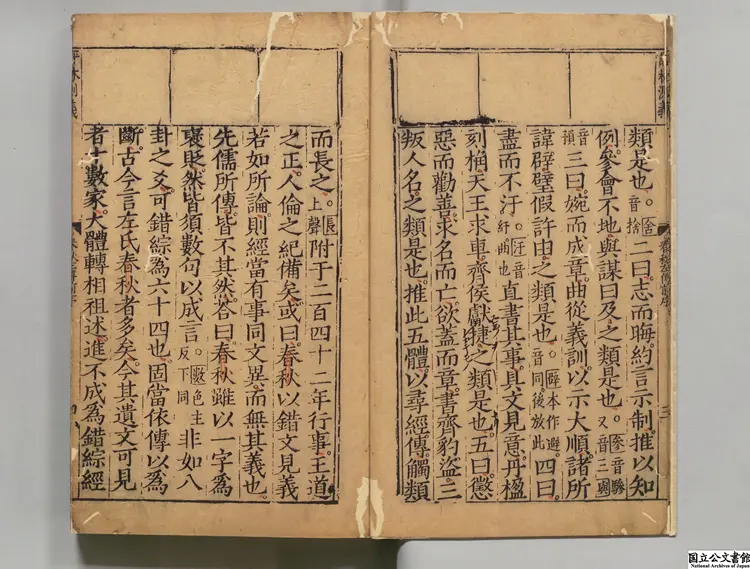 類是也。舍音捨二曰志而晦約言示制推以知
例參會不地與謀曰及之類是也。參音驂又音三與
音預三曰婉而成章曲從義訓以示大順諸所
諱辟璧假許田之類是也。辟本作避音同後放此四曰
盡而不汙汙音紆曲也直書其事具文見意丹楹
刻桷天王求車齊侯獻捷之類是也五曰懲
惡而勸善求名而亡欲蓋而章書齊豹盜三
叛人名之類是也推此五體以尋經傳觸類
而長之。長上聲附于二百四十二年行事王道
之正人倫之紀備矣或曰春秋以錯文見義
若如所論則經當有事同文異而無其義也
先儒所傳皆不其然答曰春秋雖以一字為
褒貶然皆須數句以成言。數色主反下同非如八
卦之爻可錯綜為六十四也固當依傳以為
斷古今言左氏春秋者多矣今其遺文可見
者十數家大體轉相祖述進不成為錯綜經
国立公文書館
National Archives of Japan